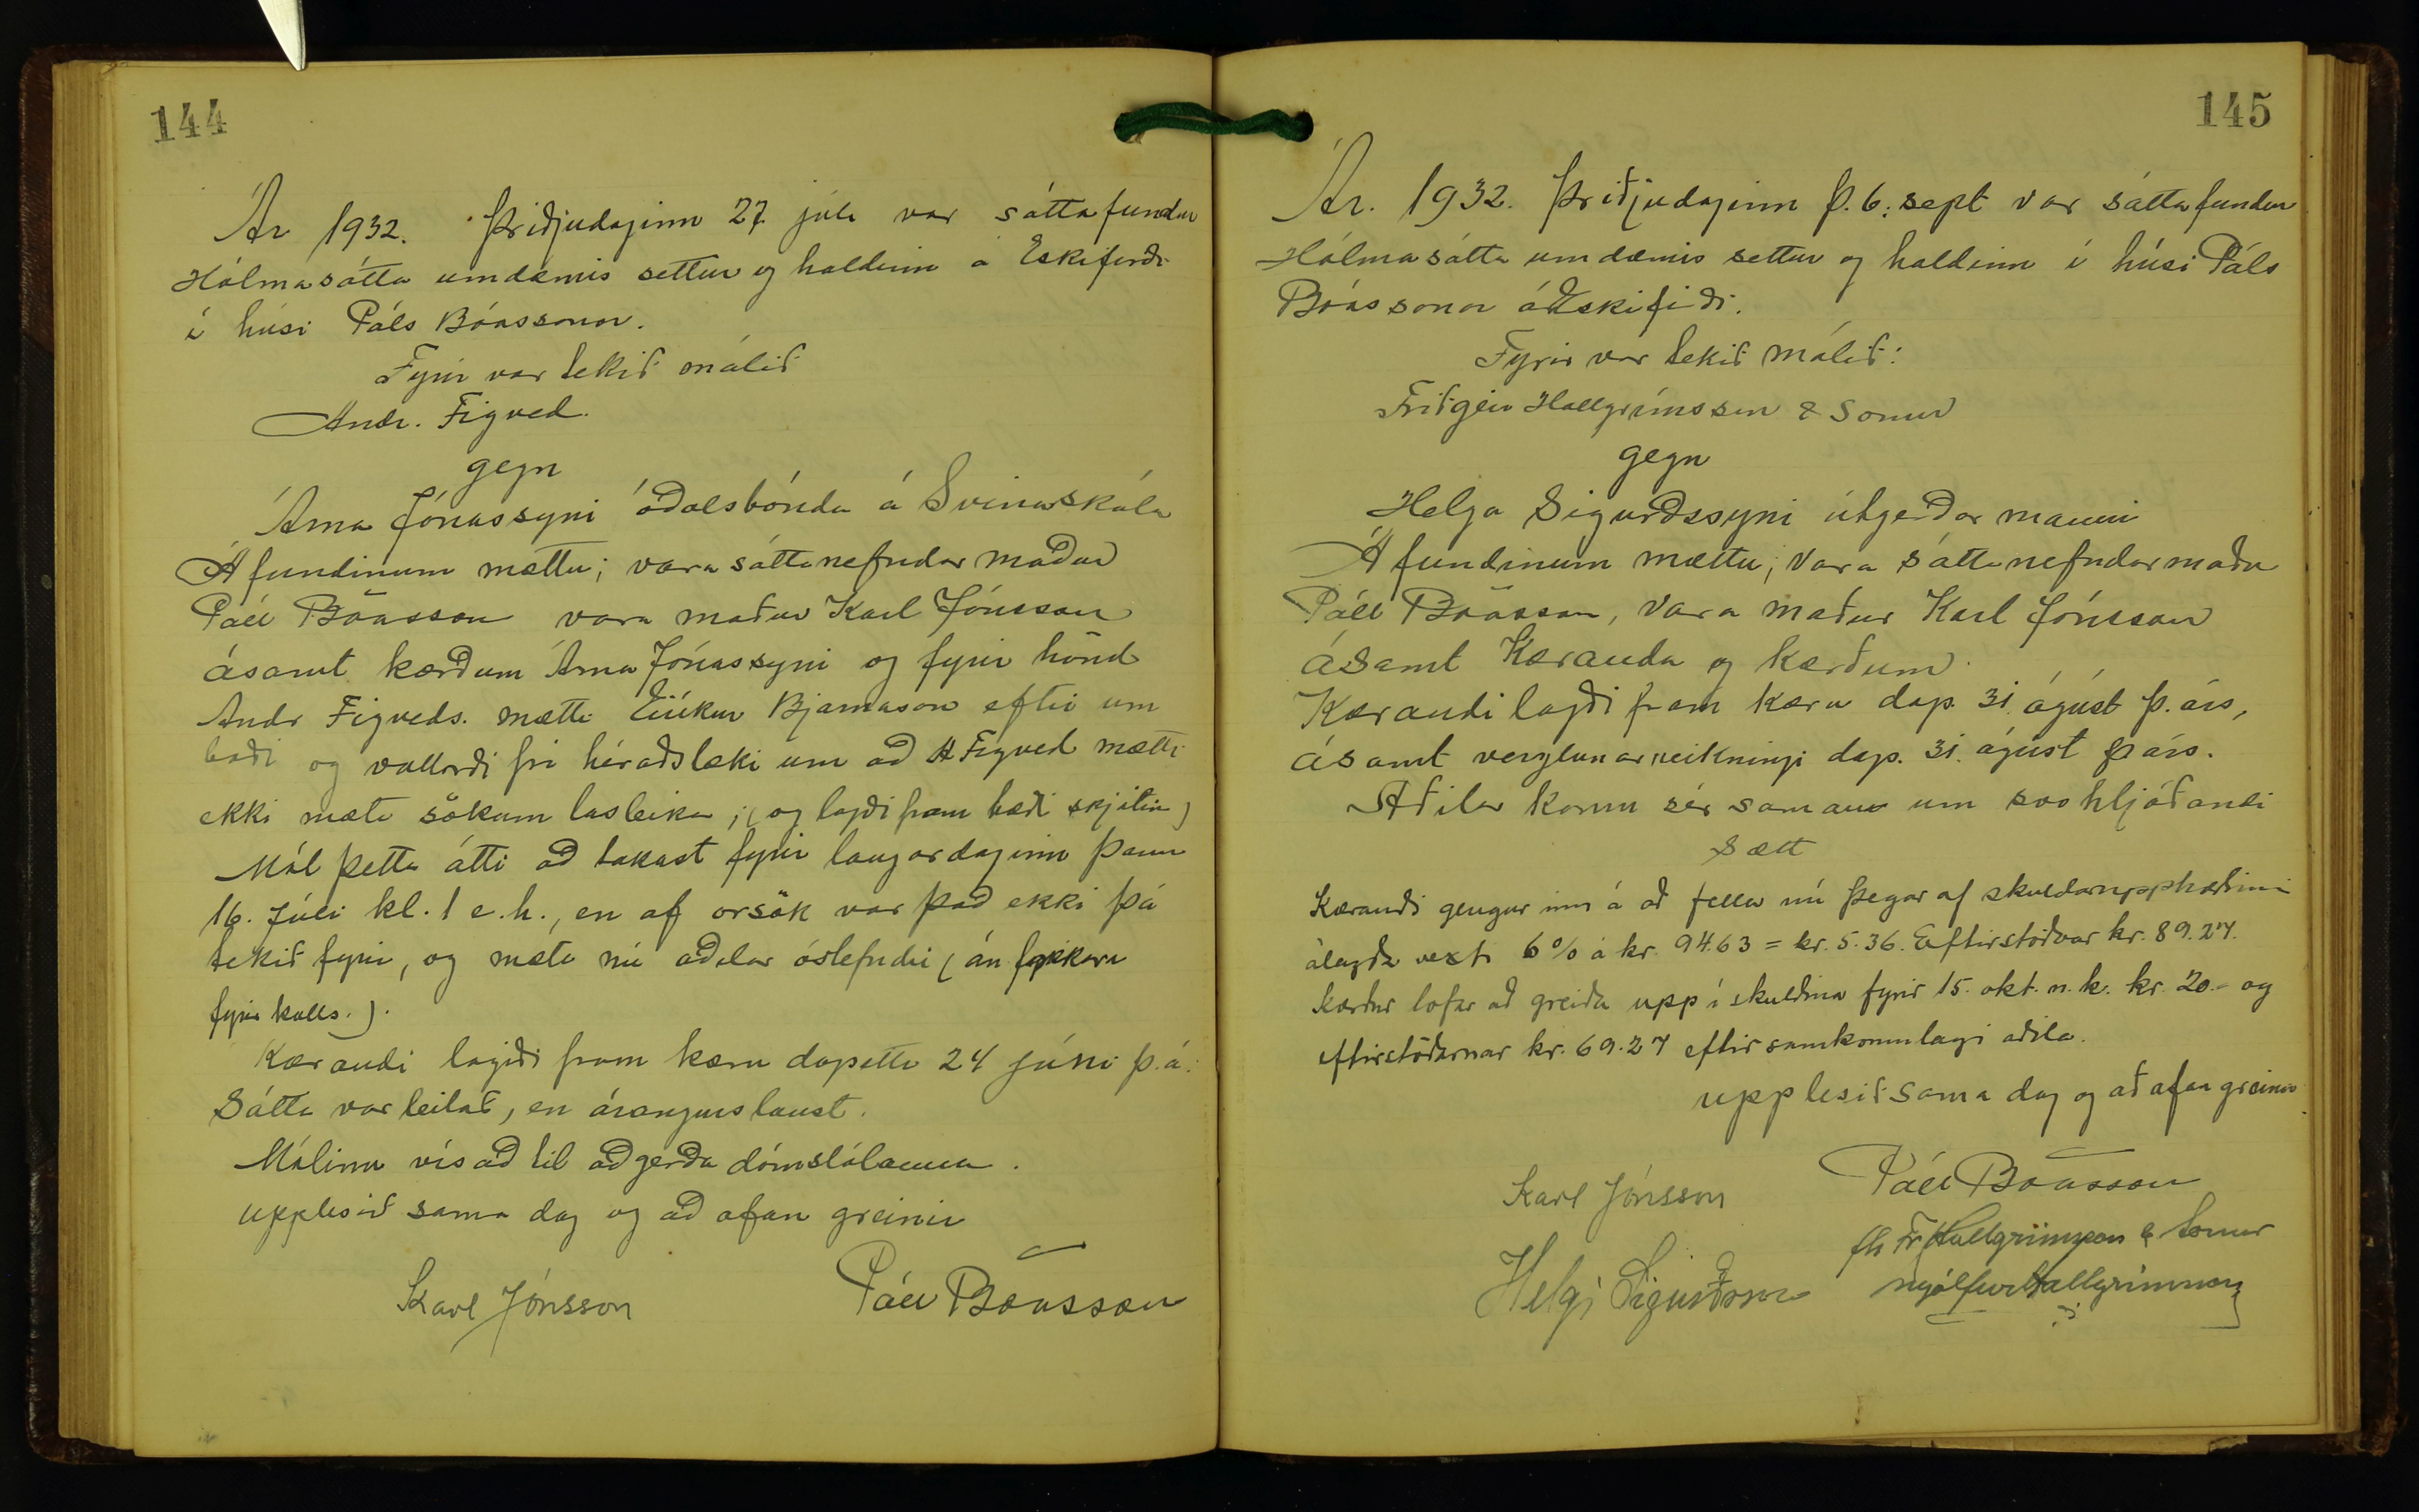 144
Ár 1932. Þriðjudaginn 27. júli var sáttafundur
Hólmasátta umdæmis settur og haldinn á Eskifirði
í húsi Páls Bóassonar.
Fyrir var tekið málið
Andr. Figved.
gegn
Árna Jónassyni óðalsbónda á Svinaskála
Á fundinum mættu; vara sáttanefndar maður
Páll Bóasson vara maður Karl Jónsson
ásamt kærðum Árna Jónassyni og fyrir hönd
Andr Figveds. mætti Eiríkur Bjarnason eftir um
boði og vottorði frá héraðslækni um að A Figved mætti
ekki mæta sökum lasleika; (og lagði fram bæði skjölin)
Mál þetta átti að takast fyrir laugardaginn þann
16. Júlí kl. 1 e.h., en af orsök var það ekki þá
tekið fyrir, og mæta nú aðilar óstefndir (án frekkara
fyrir kalls.).
Kærandi lagði fram kæru dagsetta 24 júni þ.á.
Sátta var leitað, en árangurslaust.
Málinu vísað til aðgerða dómstólanna.
upplesið sama dag og að ofan greinir
Karl Jónsson Páll Bóasson
145
Ár. 1932. Þriðjudaginn þ. 6. sept var sáttafundur
Hólmasátta umdæmis settur og haldinn í húsi Páls
Bóassonar á Eskifiði.
Fyrir var tekið málið:
Friðgeir Hallgrímsson & Sonur
gegn
Helga Sigurðssyni útgerðar manni
Á fundinum mættu; Vara sáttanefndarmaður
Páll Bóasson, Vara maður Karl Jónsson
ásamt Kæranda og kærðum.
Kærandi lagði fram kæru dags. 31. ágúst þ. árs,
ásamt verzlunarreikningi dags. 31. ágúst þ árs.
Aðilar komu sér saman um svohljóðandi
Sætt
Kærandi gengur inn á að fella nú þegar af skuldarupphæðinni
álagða vexti 6% á kr. 94.63 = kr. 5.36. Eftirstöðvar kr. 89.27.
Kærður lofar að greiða upp í skuldina fyrir 15. okt. n.k. kr. 20.- og
eftirstöðvarnar kr. 69.27 eftir samkomulagi aðila.
upplesið sama dag og að ofan greinir
Karl Jónsson Páll Bóasson
Helgi Sigurðsson fh Fr Hallgrímsson & Sonur
Hallgrímsson